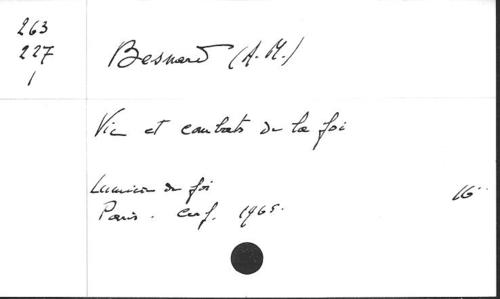 263
227
1
Besnard (A.M.)
Vie et combats de la foi
Lumière de foi
Paris. Cerf. 1965.
16